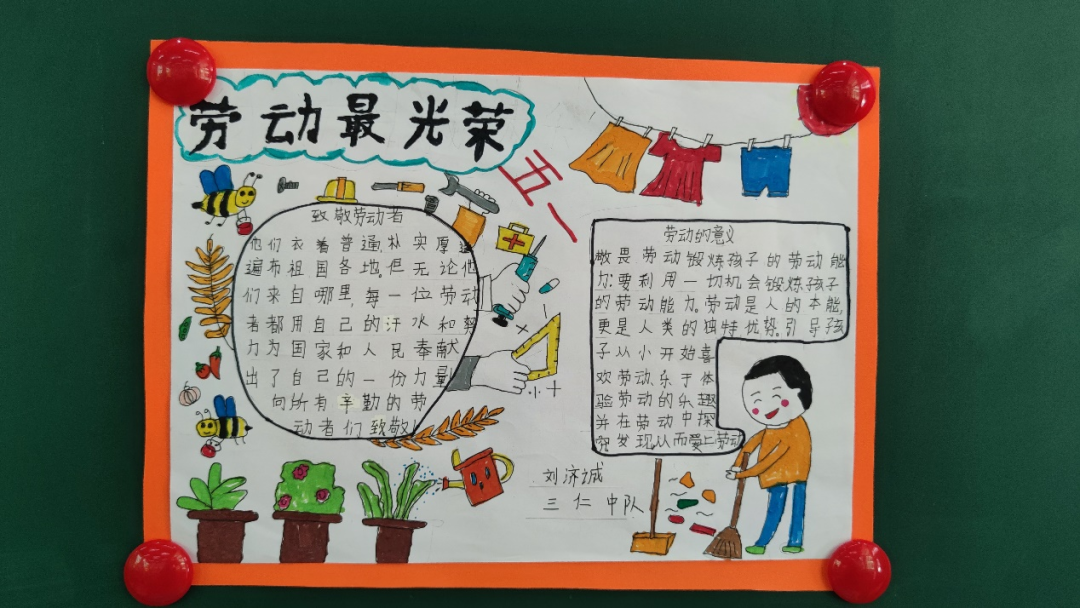 劳动最光荣
五一
致敬劳动者
他们衣着普通,朴实厚道
遍布祖国各地,但无论他
们来自哪里,每一位劳动
者都用自己的汗水和努
力为国家和人民奉献
出了自己的一份力量
向所有辛勤的劳
动者们致敬!
劳动的意义
敬畏劳动锻炼孩子的劳动能
力:要利用一切机会锻炼孩子
的劳动能力。劳动是人的本能,
更是人类的独特优势。引导孩
子从小开始喜
欢劳动、乐于体
验劳动的乐趣
并在劳动中探
究发现从而爱上劳动
刘济诚
三仁中队